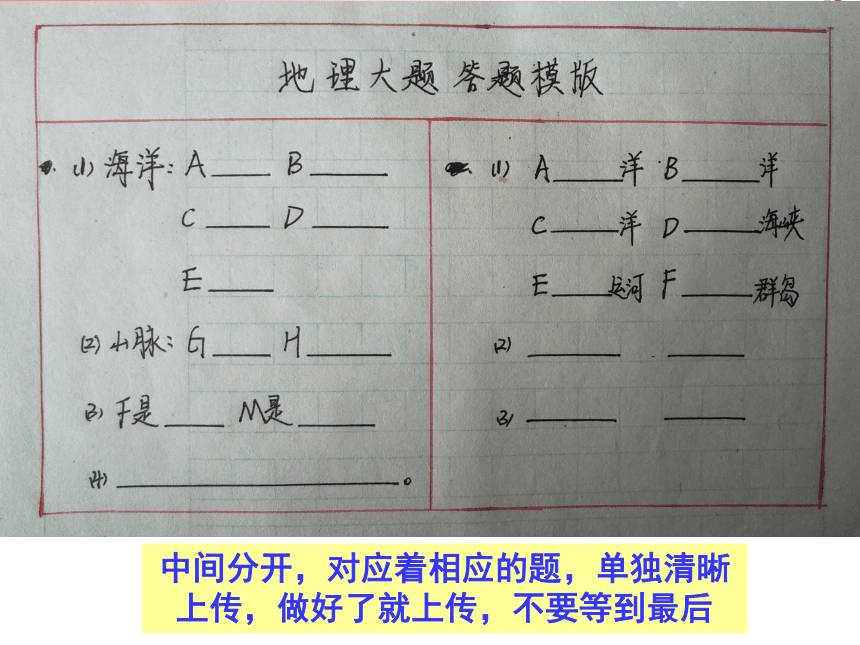 地理大题答题模版
(1)海洋:A____ B____
C____ D____
E____
(2)山脉:G____ H____
(3)F是____ M是____
(4)____。
(1) A____洋 B____洋
C____洋 D____海峡
E____运河 F____群岛
(2) ____ ____
(3) ____ ____
中间分开，对应着相应的题，单独清晰
上传，做好了就上传，不要等到最后